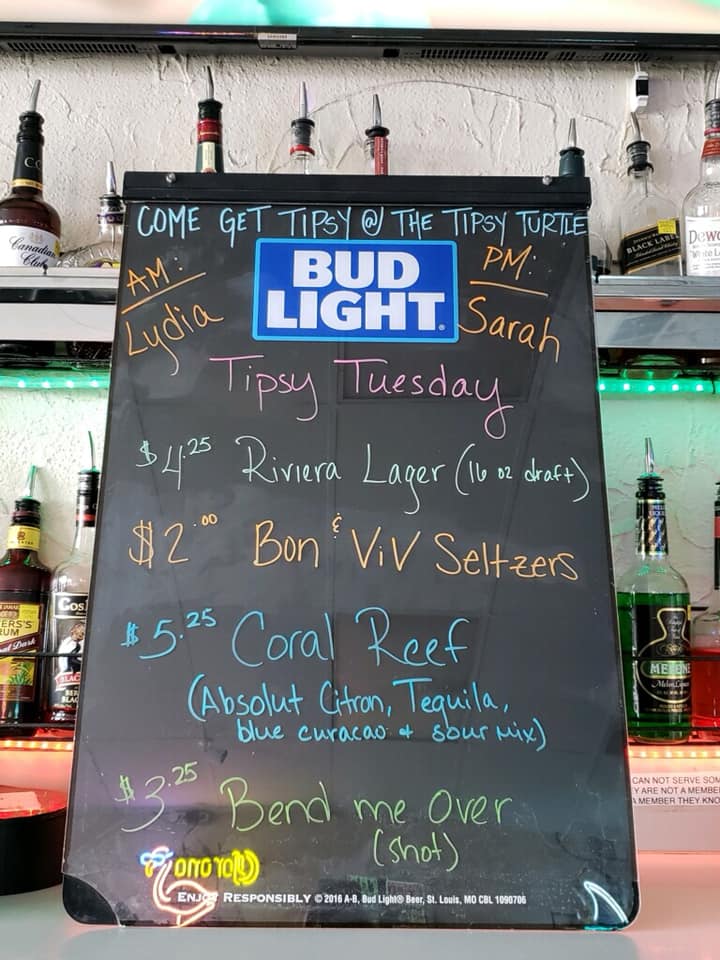 COME GET TIPSY @ THE TIPSY TURTLE
AM:
Lydia
BUD
LIGHT
PM:
Sarah
Tipsy Tuesday
$4.25 Riviera Lager (16 oz draft)
$2.00 Bon & ViV Seltzers
$5.25 Coral Reef
(Absolut Citron, Tequila,
blue curacao + sour mix)
$3.25 Bend me Over
(shot)
ENJOY RESPONSIBLY © 2016 A-B, Bud Light® Beer, St. Louis, MO CBL 1090706
Canadian
Club
BLACK LABEL
CAN NOT SERVE SOM
Y ARE NOT A MEMBE
A MEMBER THEY KNO